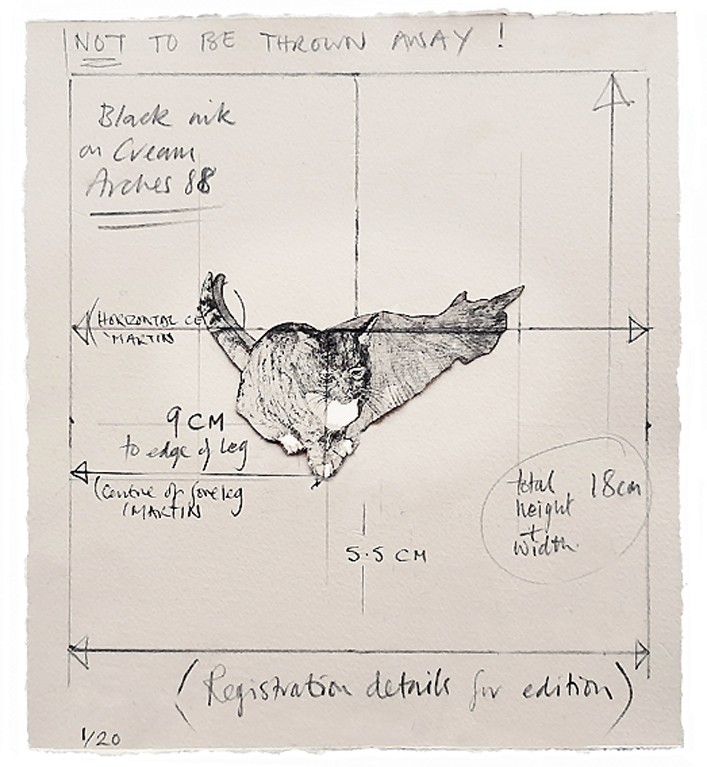 NOT TO BE THROWN AWAY !
Black ink
on Cream
Arches 88
(HORIZONTAL CE
MARTIN
9 CM
to edge of leg
(Centre of foreleg
/MARTIN
total 18cm
height
+
width.
5.5 CM
(Registration details for edition)
1/20